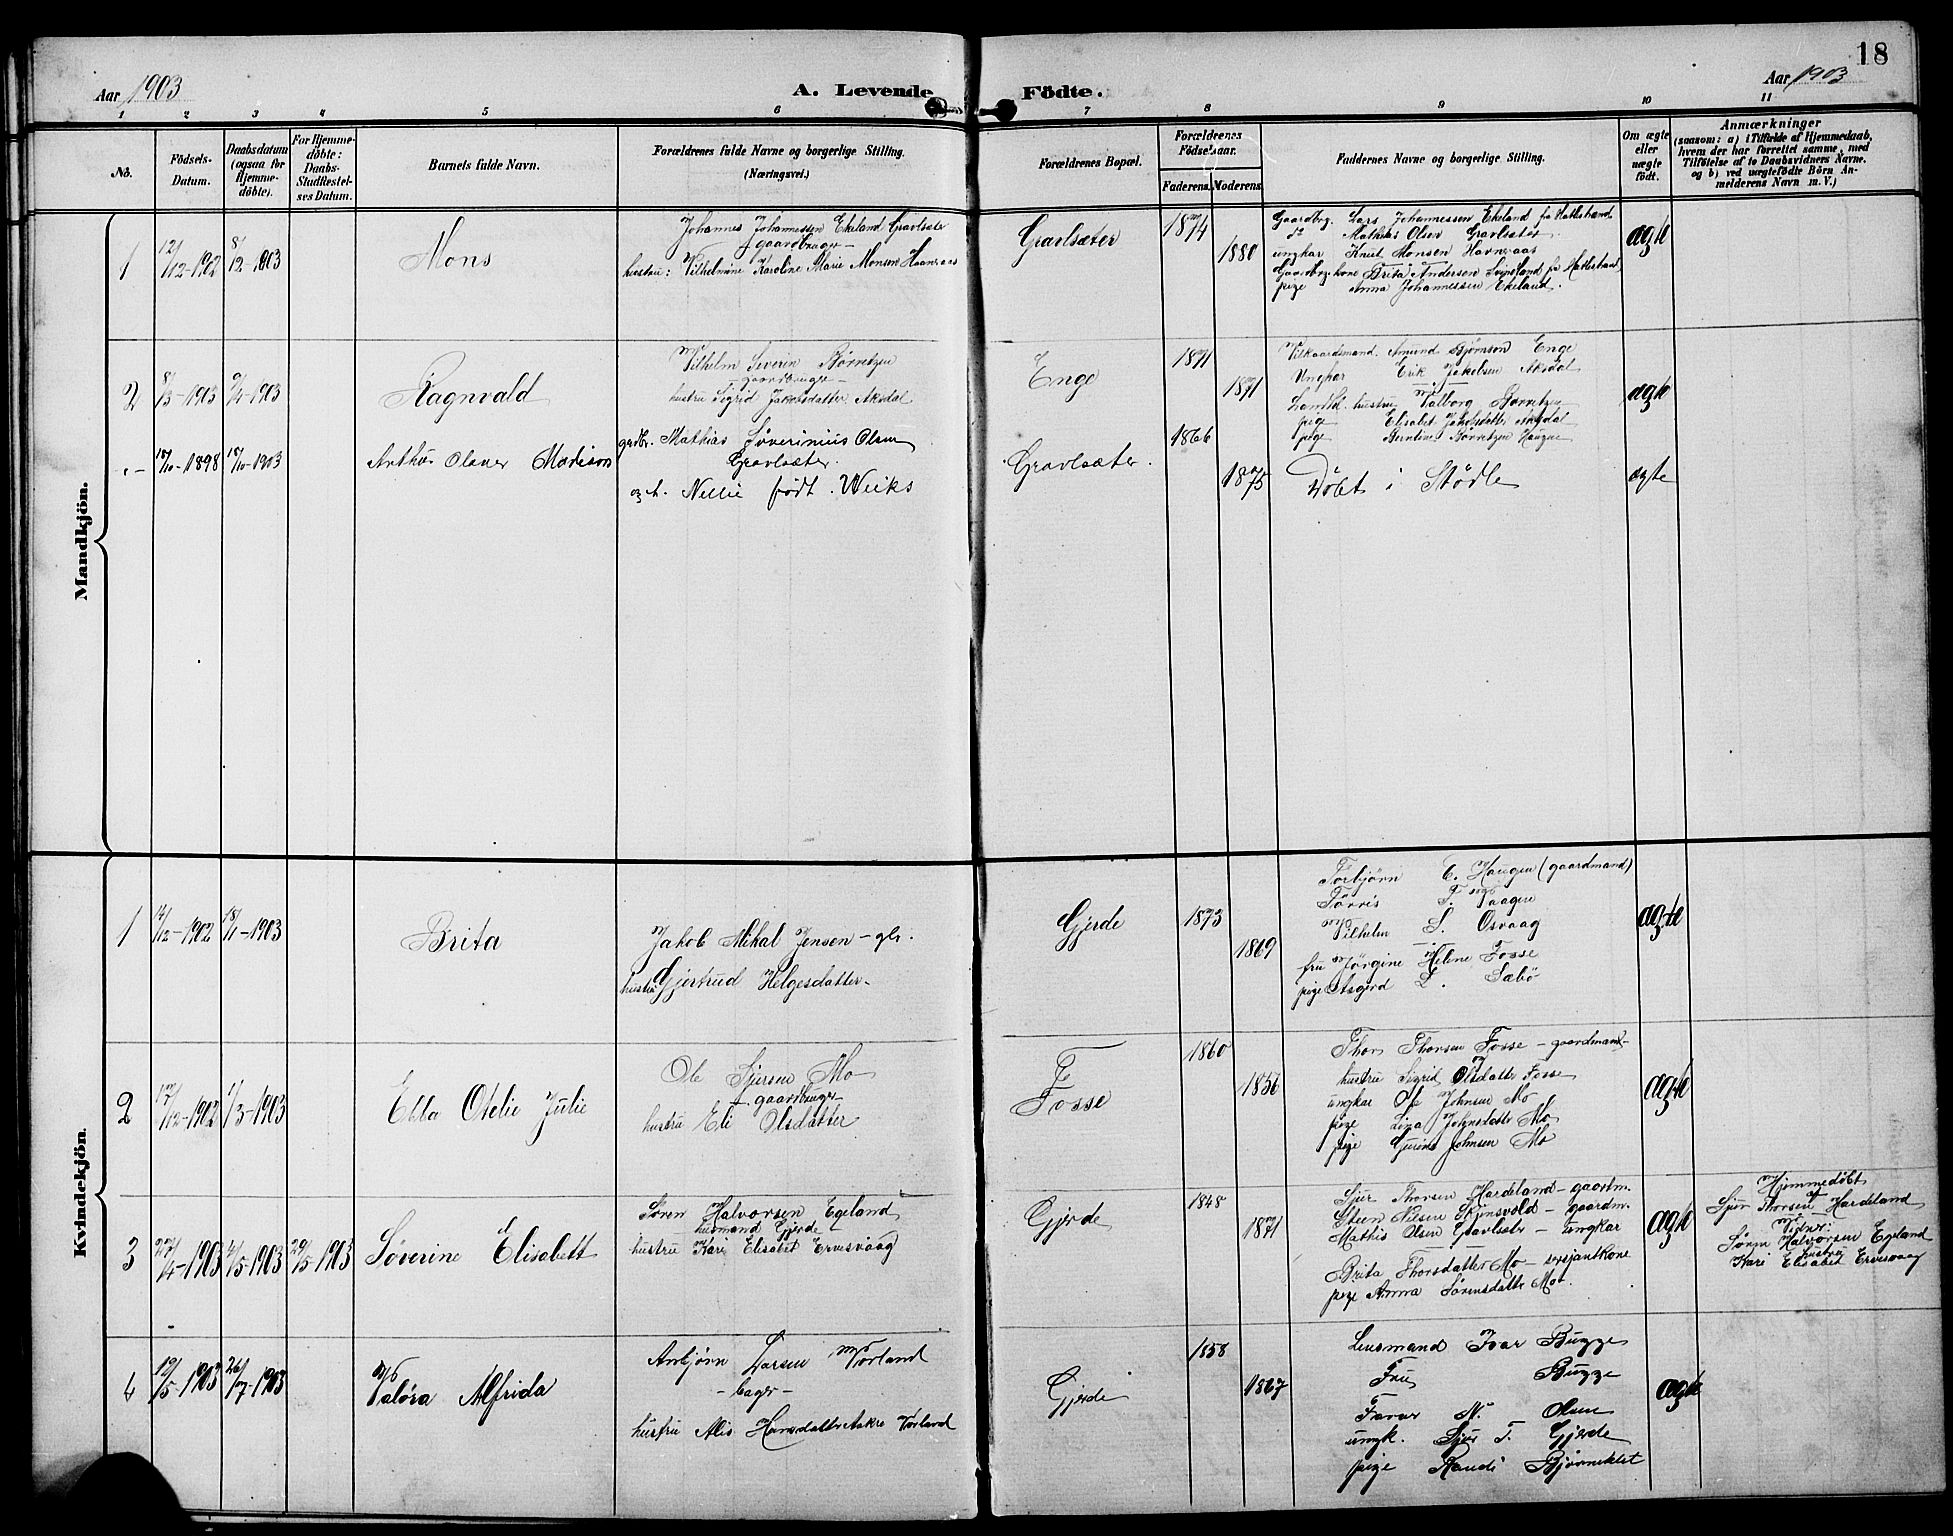 18
Aar 1903
A. Levende Födte.
Aar 1903
1 2 3 4 5 6 7 8 9 10 11
No.
Födsels-
Datum.
Daabsdatum
(ogsaa for
Hjemme-
döbte).
For Hjemme-
döbte:
Daabs-
Stadfæstel-
ses Datum.
Barnets fulde Navn.
Forældrenes fulde Navne og borgerlige Stilling.
(Næringsvei.)
Forældrenes Bopæl.
Forældrenes
Födselsaar.
Faderens. Moderens.
Faddernes Navne og borgerlige Stilling.
Om ægte
eller
uægte
födt.
Anmærkninger
(saasom: a) i Tilfælde af Hjemmedaab,
hvem der har forrettet samme, med
Tilföielse af to Daabsvidners Navne.
og b) ved uægtefödte Börn An-
melderens Navn m. V.)
Mandkjön.
1
12/12-1902
8/2-1903
Mons
Johannes Johannessen Ekeland Gravlsæter
- gaardbruger -
hustru: Vilhelmine Karoline Marie Monsen Havnaas
Gravlsæter
1874
1880
Gaardbrg. Lars Johannessen Ekeland fra Hatlestrand
do Mathias Olsen Gravlsæter
ungkar Knut Monsen Havnaas
Gaardbrg. kone Brita Andersen Svindland fra Hatlestrand
pige Anna Johannessen Ekeland.
ægte
2
8/3-1903
9/4-1903
Ragnvald
Vilhelm Severin Børretzen
- gaardbruger -
hustru Sigrid Jakobsdatter Aksdal
Enge
1871
1871
Vilkaarsmand Amund Bjørnson Enge
Ungkar Erik Jakobsen Aksdal
Landhl. hustru Valborg Børretzen
pige Elisabet Jakobsdatter Aksdal
pige Berntine Børretzen Haugen
ægte
"-
18/10-1898
18/10-1903
Arthur Olaner Madison
gardbr. Mathias Søverinius Olsen
Gravlsæter
og h. Nellie født Weiks
Gravlsæter.
1866
1875
Døbt i Stødle
ægte
Kvindekjön.
1
14/12-1902
18/1-1903
Brita
Jakob Mikal Jensen - gbr.
hustru Gjertrud Helgesdatter-
Gjerde
1873
1869
Torbjørn C. Haugen (gaardmand)
Tørris T. Vaagen
Vilhelm S. Osvaag
fru Jørgine Helene Fosse
pige Asgerd L. Sæbø
ægte
2
17/12-1902
1/3-1903
Ella Otelie Julie
Ole Sjursen Mo
- gaardbruger -
hustru Eli Olsdatter
Fosse
1860
1856
Thor Thorsen Fosse - gaardmand-
hustru Sigrid Olsdatter Fosse
ungkar Ole Johnsen Mo
pige Lina Johnsdatter Mo
pige Gurine Johnsen Mo
ægte
3
27/4-1903
4/5-1903
29/5-1903
Søverine Elisabett
Søren Halvorsen Egeland
husmand Gjerde
hustru Kari Elisabet Ervesvaag
Gjerde
1848
1871
Sjur Thorsen Hardeland - gaardm.
Steen Nilsen Skjinsvold - gaardm.
Mathis Olsen Gravlsæter - ungkar
Brita Thorsdatter Mo - sersjantkone
pige Anna Sørensdatter Moe.
ægte
Hjemmedøbt
Sjur Thorsen Hardeland
Vidner:
Søren Halvorsen Egeland
hustru
Kari Elisabet Ervesvaag
4
19/5-1903
26/7-1903
Valøra Alfrida
Anbjørn Larsen Vorland
- bager -
hustru Alis Hansdatter Aakre Vorland
Gjerde
1858
1867
Lensmand Ivar Bugge
Fru Bugge
Farver N. Olsen
ungk. Sjur T. Gjerde
pige Randi Bjørneklet
ægte